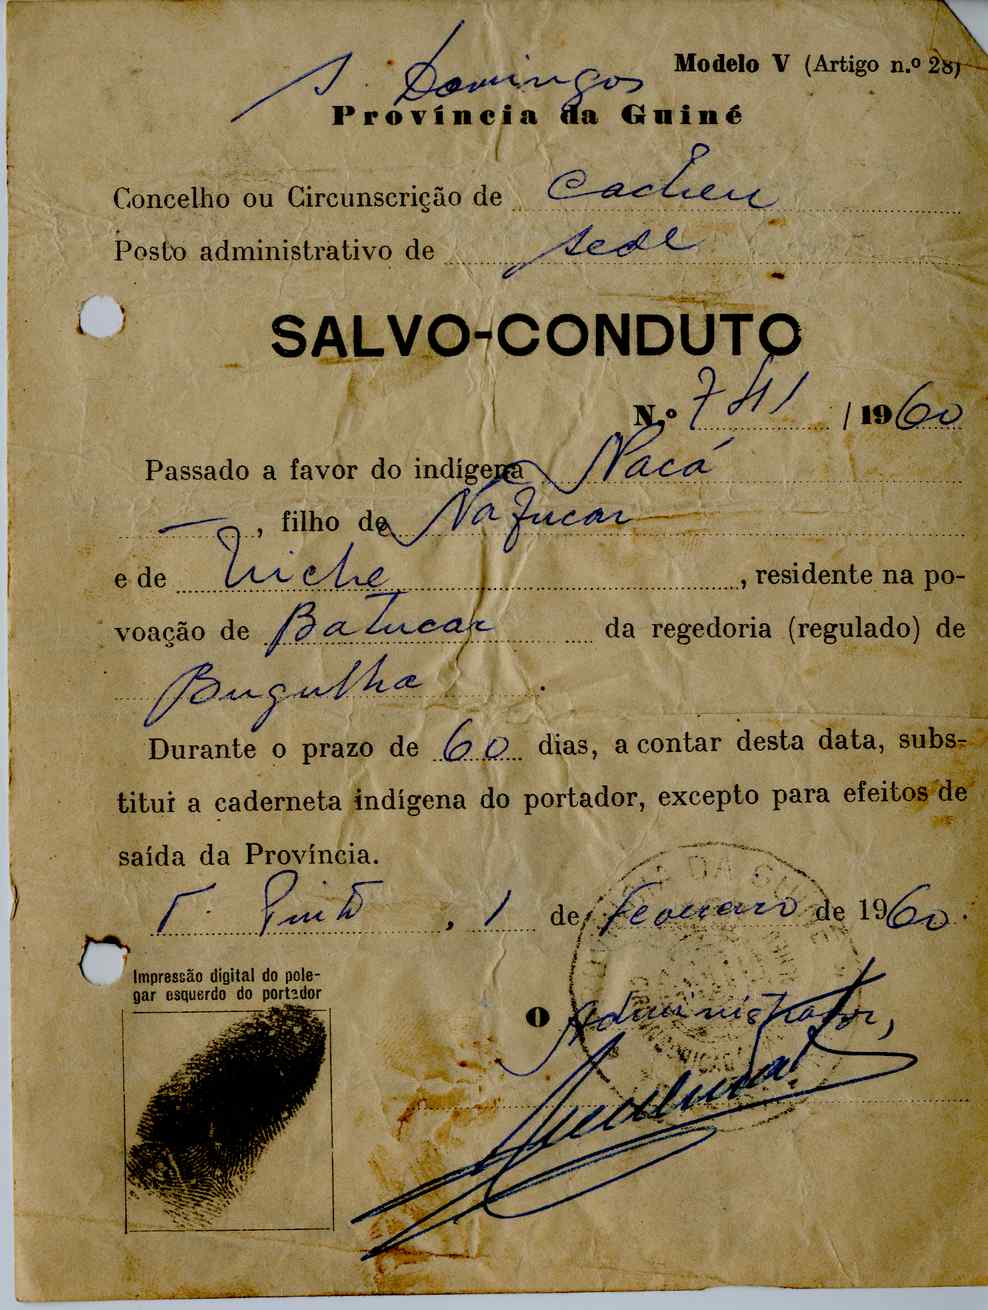 S. Domingos
Modelo V (Artigo n.º 28)
Província da Guiné
Concelho ou Circunscrição de Cacheu
Posto administrativo de sede
SALVO-CONDUTO
N.º 741 / 1960
Passado a favor do indígena Nacá
—, filho de Nafucar
e de Niche, residente na po-
voação de Batucar da regedoria (regulado) de
Bugulha.
Durante o prazo de 60 dias, a contar desta data, subs-
titui a caderneta indígena do portador, excepto para efeitos de
saída da Província.
T. Pinto, 1 de Fevereiro de 1960.
Impressão digital do pole-
gar esquerdo do portador
O Administrador,